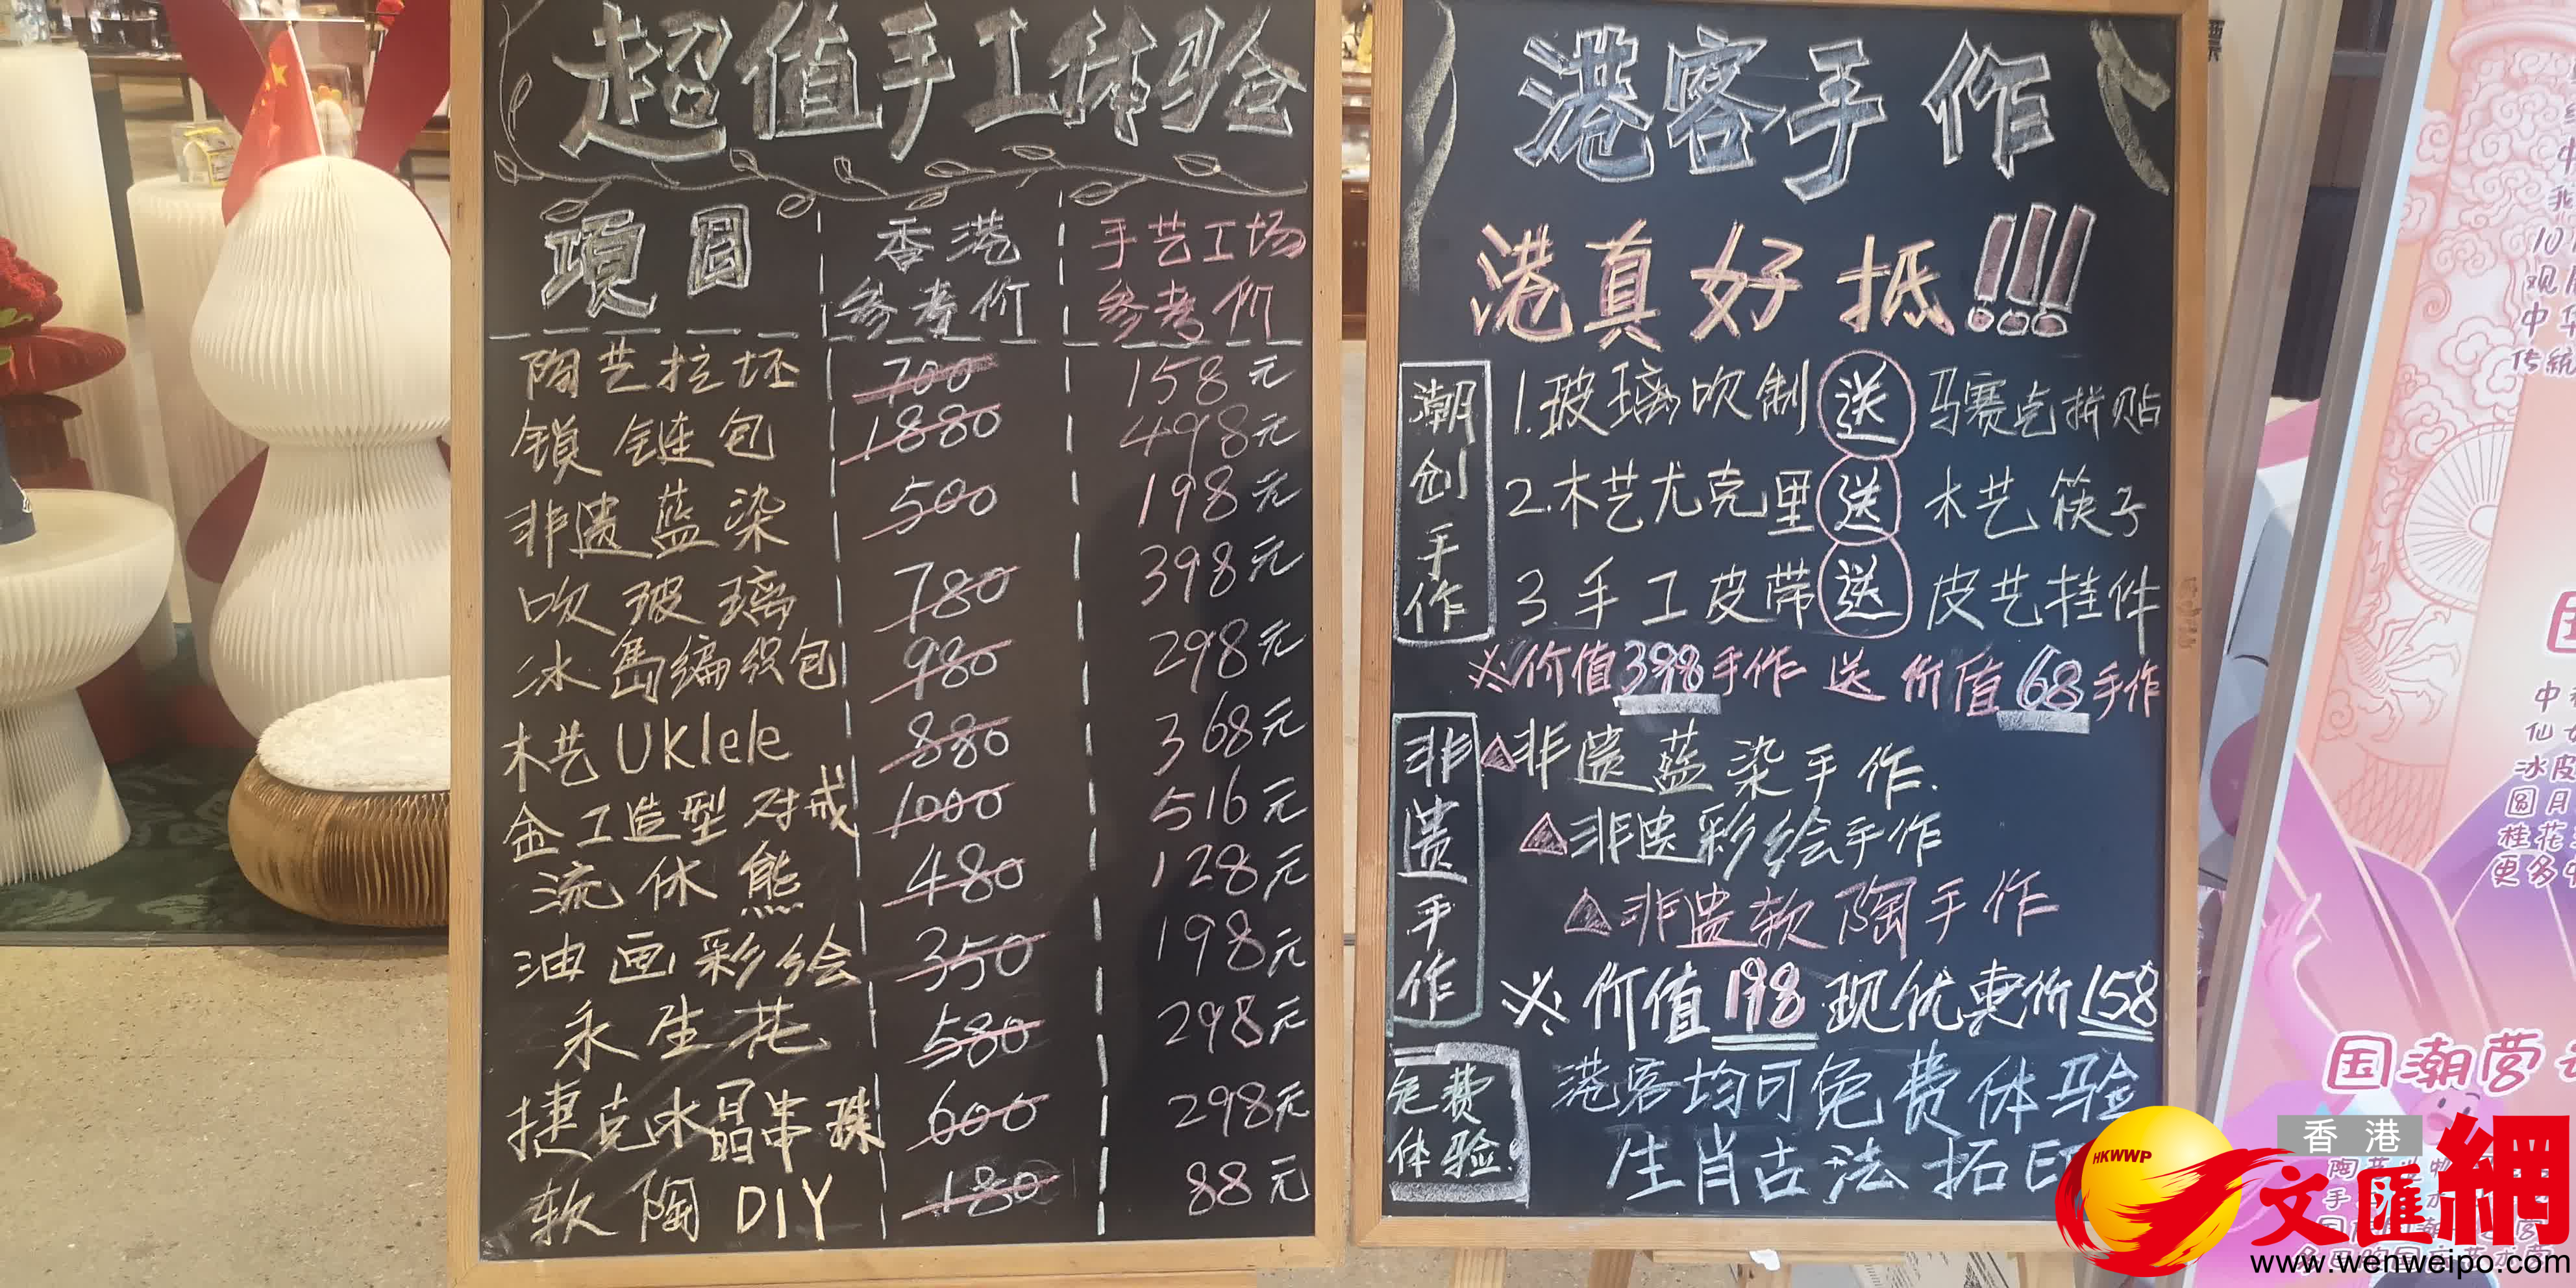 超值手工体验
項目 香港参考价 手艺工场参考价
陶艺拉坯 700 158元
锁链包 1880 498元
非遗蓝染 500 198元
吹玻璃 780 398元
冰岛编织包 980 298元
木艺Uklele 880 368元
金工造型对戒 1000 516元
流体熊 480 128元
油画彩绘 350 198元
永生花 580 298元
捷克水晶串珠 600 298元
软陶DIY 180 88元
港客手作
港真好抵!!!
潮创手作
1.玻璃吹制 送 马赛克拼贴
2.木艺尤克里 送 木艺筷子
3 手工皮带 送 皮艺挂件
※价值398手作 送 价值68手作
非遗手作
△非遗蓝染手作.
△非遗彩绘手作
△非遗软陶手作
※价值198现优惠价158
免费体验
港客均可免费体验
生肖古法拓印
国潮营
香港
HKWWP
文匯網
www.wenweipo.com